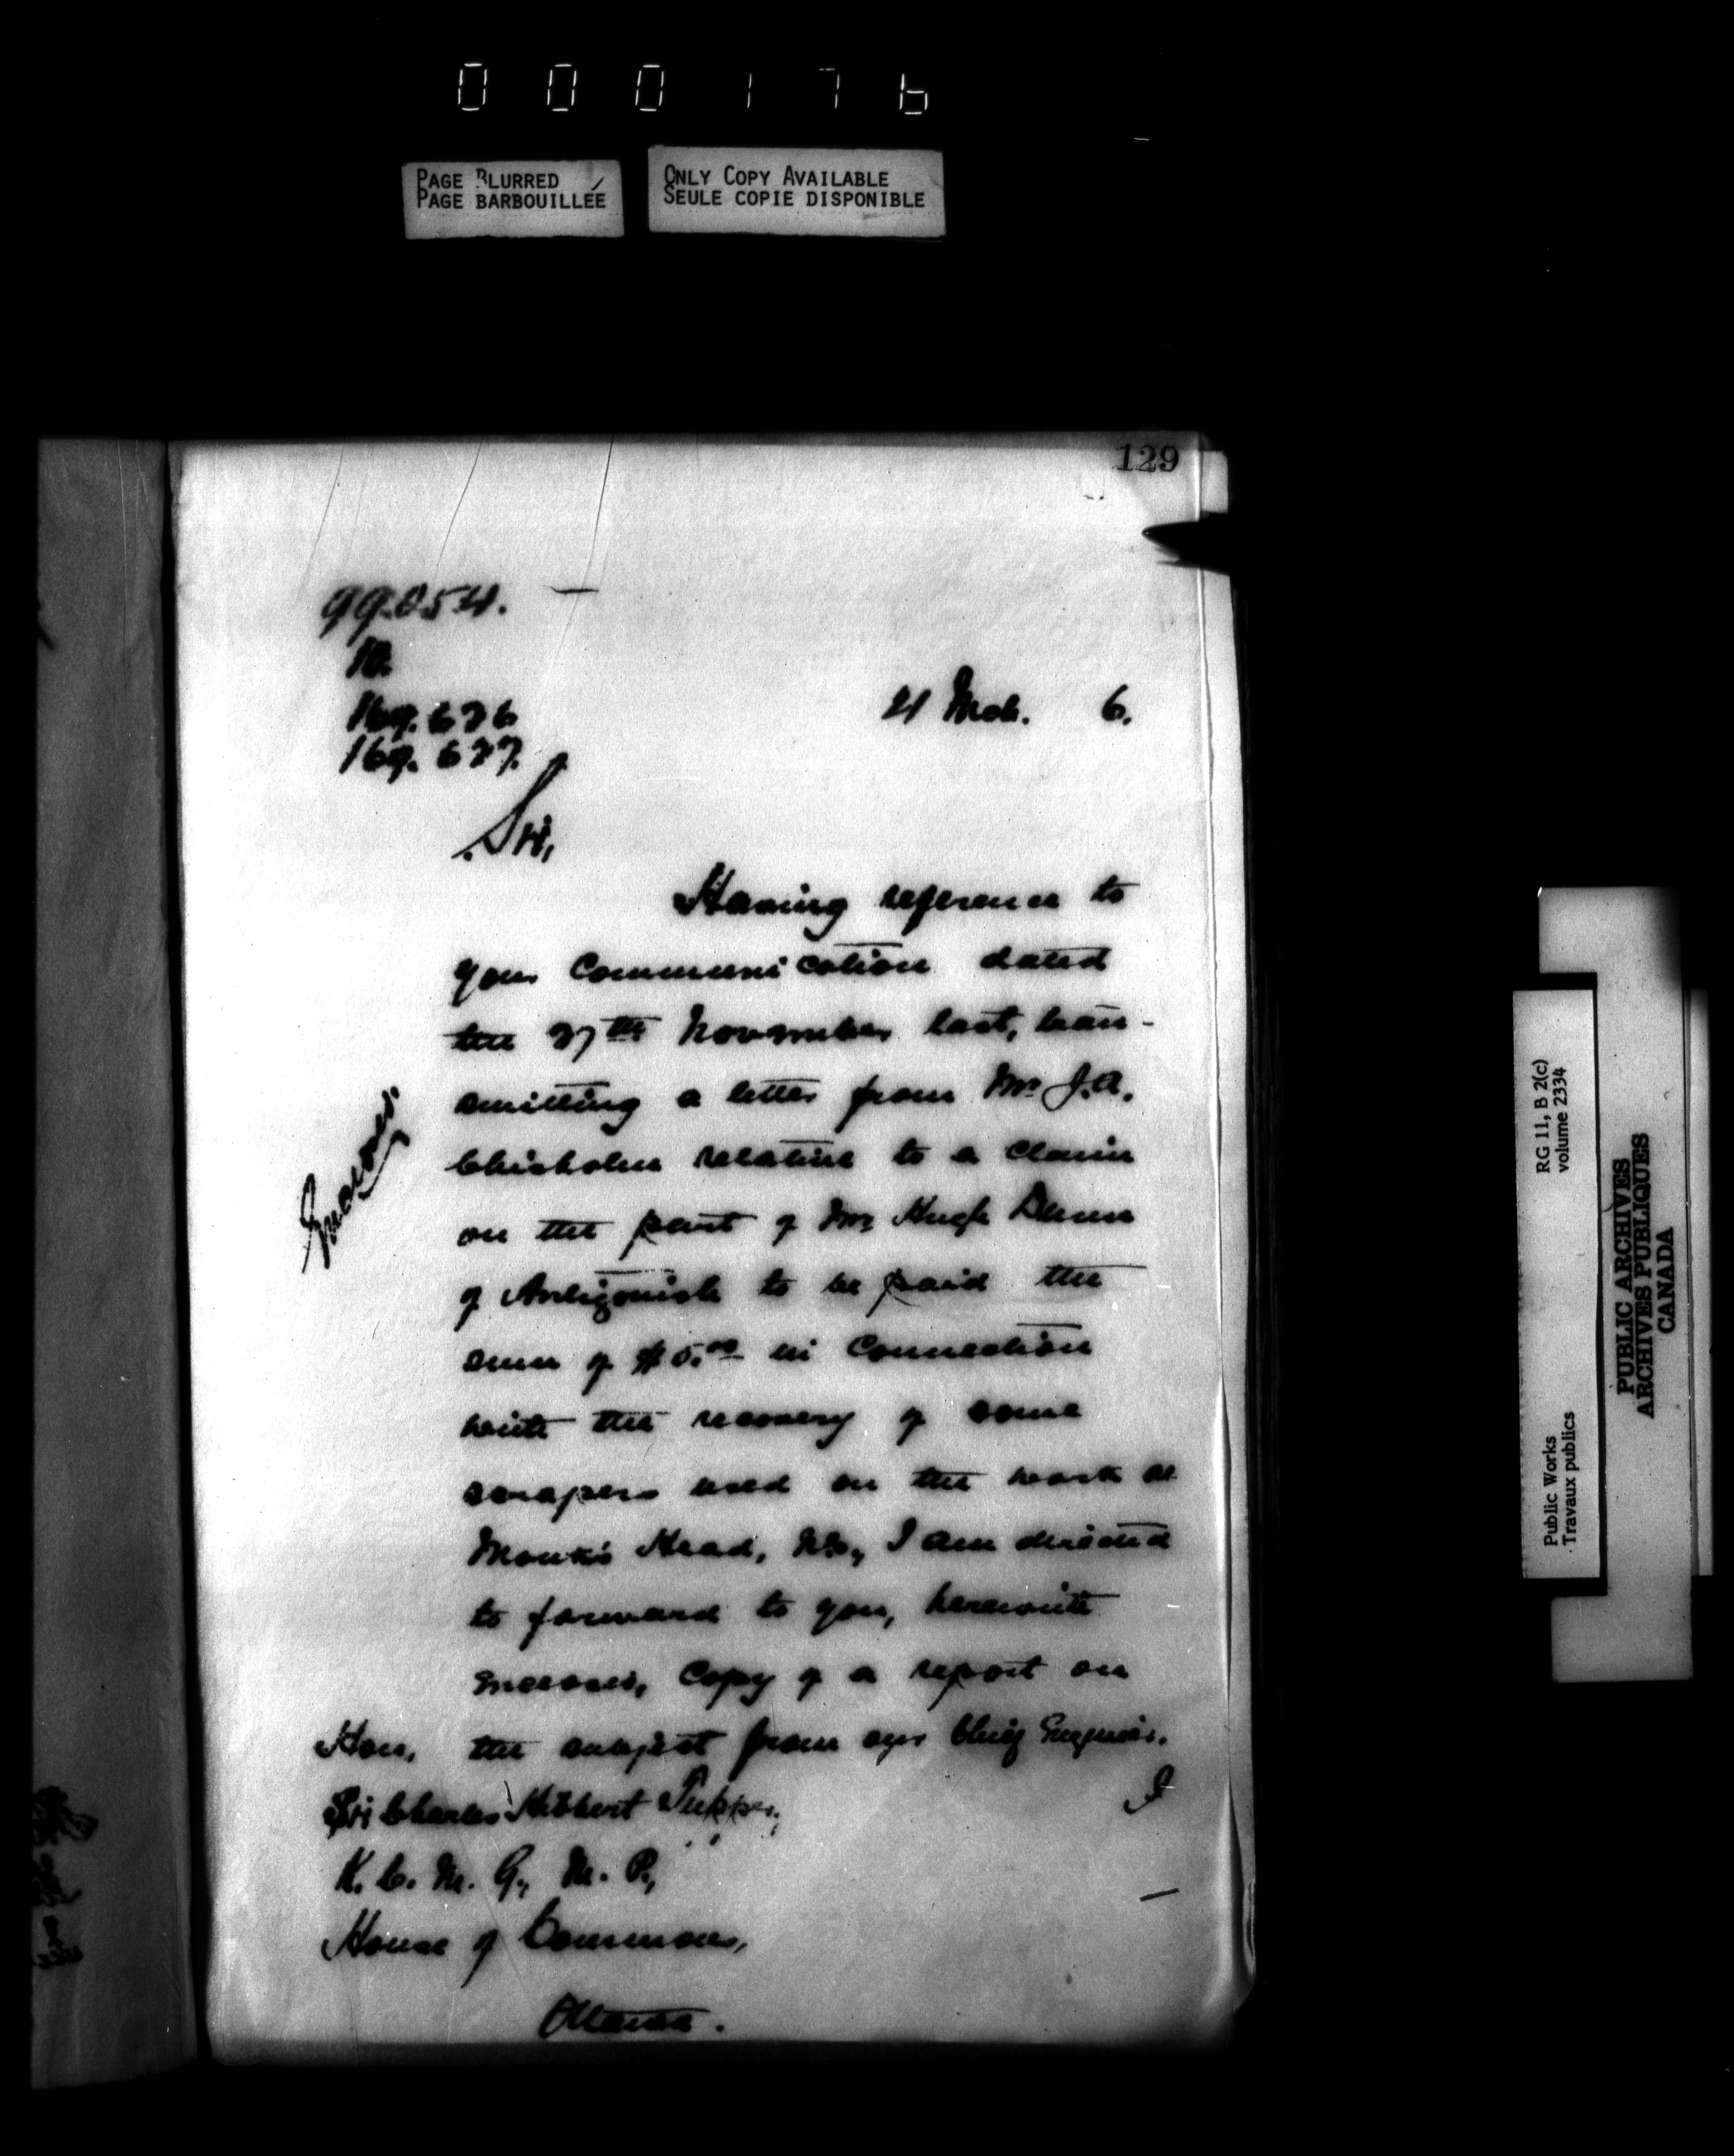 000176
PAGE BLURRED
PAGE BARBOUILLÉE
ONLY COPY AVAILABLE
SEULE COPIE DISPONIBLE
129
99.054.
10.
169.626
169.627.
21 Mch. 6.
Sir,
Having reference to
your communication dated
the 27th November last, tran-
smitting a letter from Mr J.A.
Chisholm relative to a claim
on the part of Mr Hugh Dunn
of Antigonish to be paid the
sum of $5.00 in connection
with the recovery of some
scrapers used on the work at
Monk's Head, N.S., I am directed
to forward to you, herewith
enclosed, copy of a report on
the subject from our Chief Engineer.
I
Enclosed.
Hon.
Sir Charles Hibbert Tupper,
K.C.M.G., M.P.,
House of Commons,
Ottawa.
RG 11, B 2(c)
volume 2334
Public Works
Travaux publics
PUBLIC ARCHIVES
ARCHIVES PUBLIQUES
CANADA